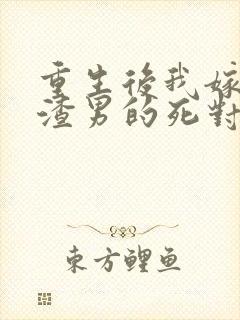 重生後我嫁
渣男的死對
東方鯉魚